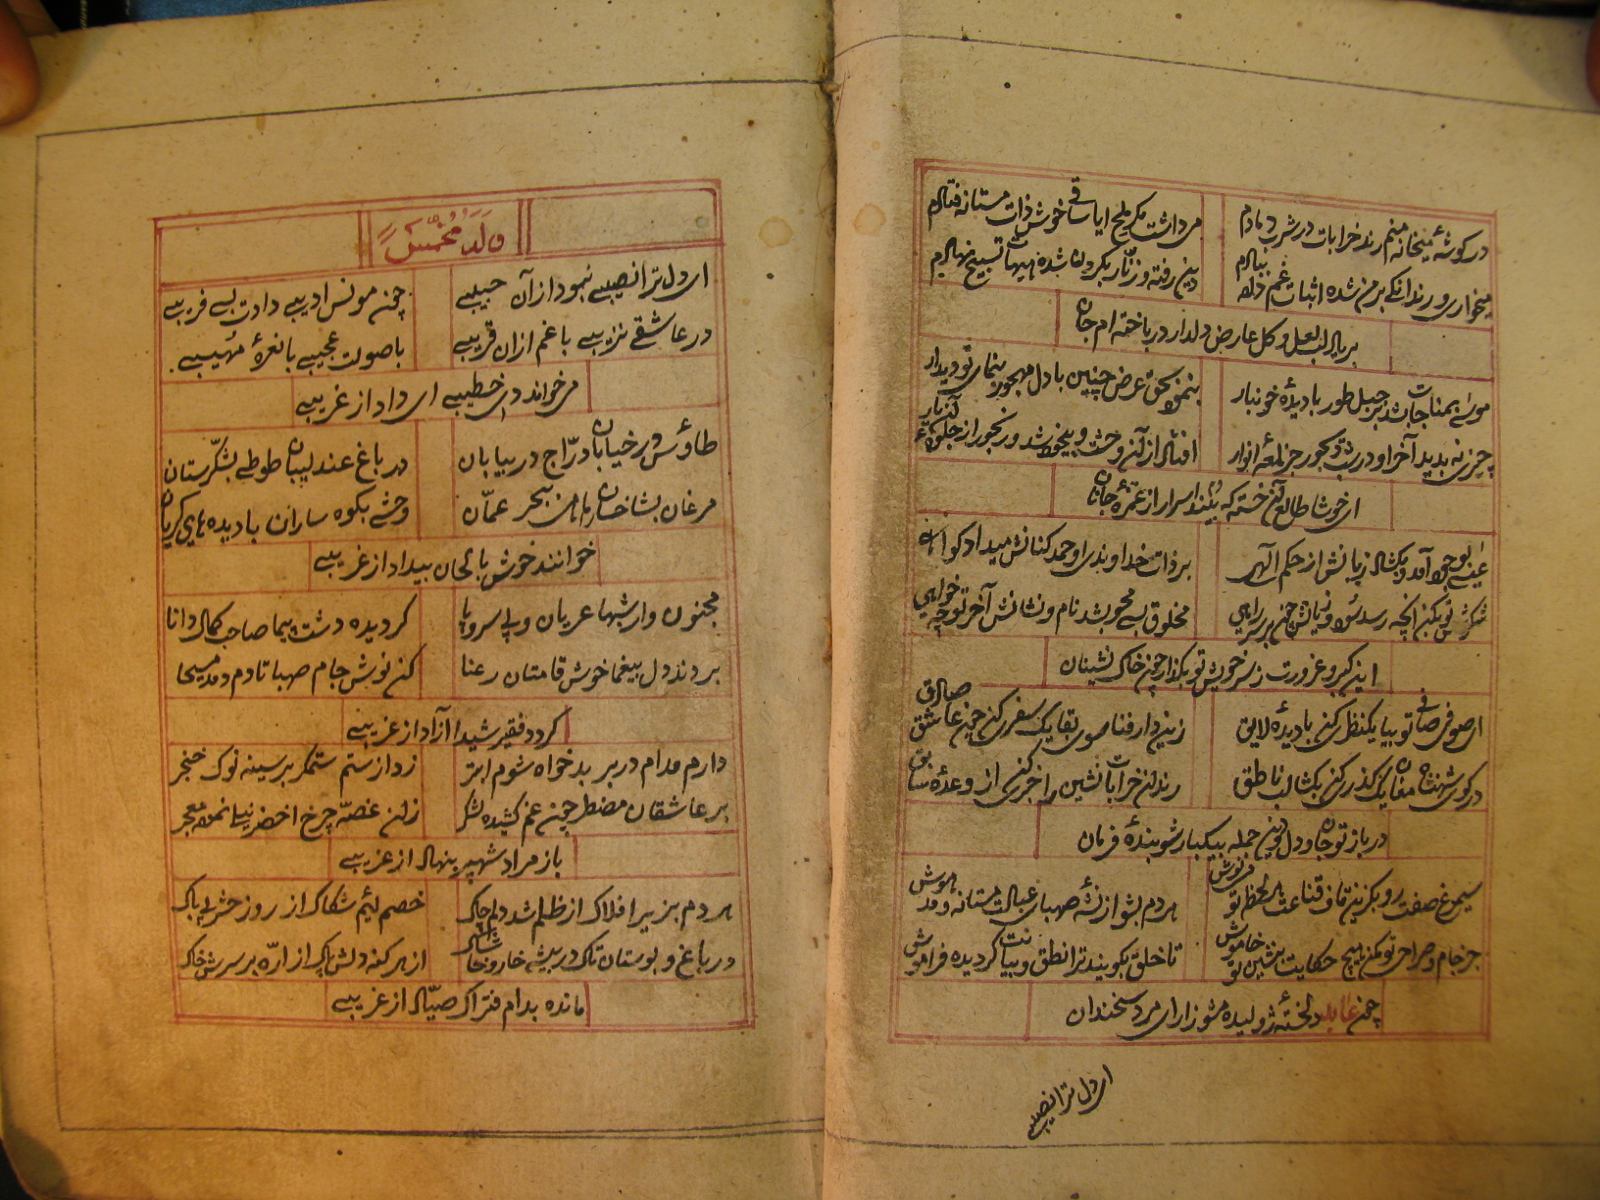 در کوشهٔ میخانه منم رند خرابات در شرب دمادم
می داشت یک ملح ایا ساقی خوش ذات مستانه فتادم
میخواری و رندانکی بر من شده اثبات غم داد بیادم
دین رفته و زنّار بکردن شده هیهات تسبیح نهادم
بر یاد لب لعل و کل عارض دلدار درباخته ام جان
موسی بمناجات شد بر جبل طور با دیدهٔ خونبار
بنمود بحق عرض چنین با دل مهجور بنمای تو دیدار
چیزی نه بدید آخر او درشب دیجور جز لمعهٔ انوار
افتاد از آن وحشت و بیخود شد و رنجور از جلوهٔ آن یار
ای خوشا طالع آن خسته که بیند اسرار از غمزهٔ جانان
عیسی بوجود آمد و بکشاد زبانش از حکم آلهی
بر ذات خداوندی او حمد کنانش میداد کواهی
شکرش تو بکن آنچه رسد سود و زیانش چون بر سر راهی
مخلوق بے محو بشد نام و نشانش آخر تو چه خواهی
این کبر و غرورت ز سر خویش تو بکذار چون خاک نشینان
ای صوفی صافی تو بیا یکنظری کن با دیدهٔ لایق
زین دار فنا سوی بقا یک سفری کن چون عاشق صادق
در کوی شهنشاه مغان یک کذری کن بکشا لب ناطق
رندان خرابات نشین را خبری کن از وعدهٔ سابق
در باز تو جان و دل و دین جمله بیکبار شو بندهٔ فرمان
سیمرغ صفت رو بکزین قاف قناعت هر لحظه تو می نوش
هر دم بشو از نشهٔ صهبای عبادت مستانه و مدهوش
جز جام و صراحی تو مکن هیچ حکایت بنشین تو خاموش
تا خلق بکویند ترا نطق و بیانت کردیده فراموش
چون عابد دلخستهٔ ژولیده مشو زار ای مرد سخندان
ای دل ترا نصیبے
وَلَهُ مُخَمَّس
ای دل ترا نصیبے نمود از آن حبیبے
چون مونس ادیبے دادت بے فریبے
در عاشقے نزیبے با غم ازان قریبے
با صوت عجیبے با نعرهٔ مهیبے
می خواند دی خطیبے ای داد از غریبے
طاؤس در خیابان درّاج در بیابان
در باغ عندلیبان طوطے بشکّرستان
مرغان بشاخساران ماهی ببحر عمّان
وحشے بکوه ساران با دیده های کریان
خوانند خوش بالحان بیداد از غریبے
مجنون وار شبها عریان و بی سر و پا
کردیده دشت پیما صاحب کمال دانا
بردند دل بیغما خوش قامتان رعنا
کن نوش جام صهبا تا دم دمد مسیحا
کردد فقیر شیدا آزاد از غریبے
دارم مدام در بر بدخواه شوم ابتر
زد از ستم ستمکر بر سینه نوک خنجر
بر عاشقان مضطر چون غم کشیده لشکر
زان غصّه چرخ اخضر نیلے نمود معجر
باز مراد شهپر بنهاد از غریبے
هر دم بزیر افلاک از ظلم شد دلم چاک
خصم لئیم شکاک از روز حشر بے باک
در باغ و بوستان تاک در بیشه خار و خاشاک
از هر کنه دلش پاک از ارّه بر سرش خاک
مانده بدام فتراک صیّاد از غریبے